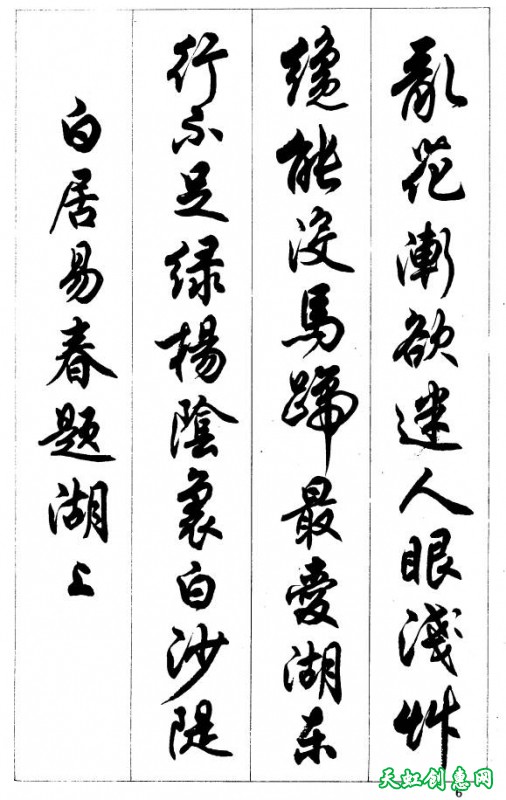 亂花漸欲迷人眼淺艸
纔能沒馬蹄最愛湖东
行不足绿楊陰裏白沙隄
白居易春题湖上
6
天虹创惠网